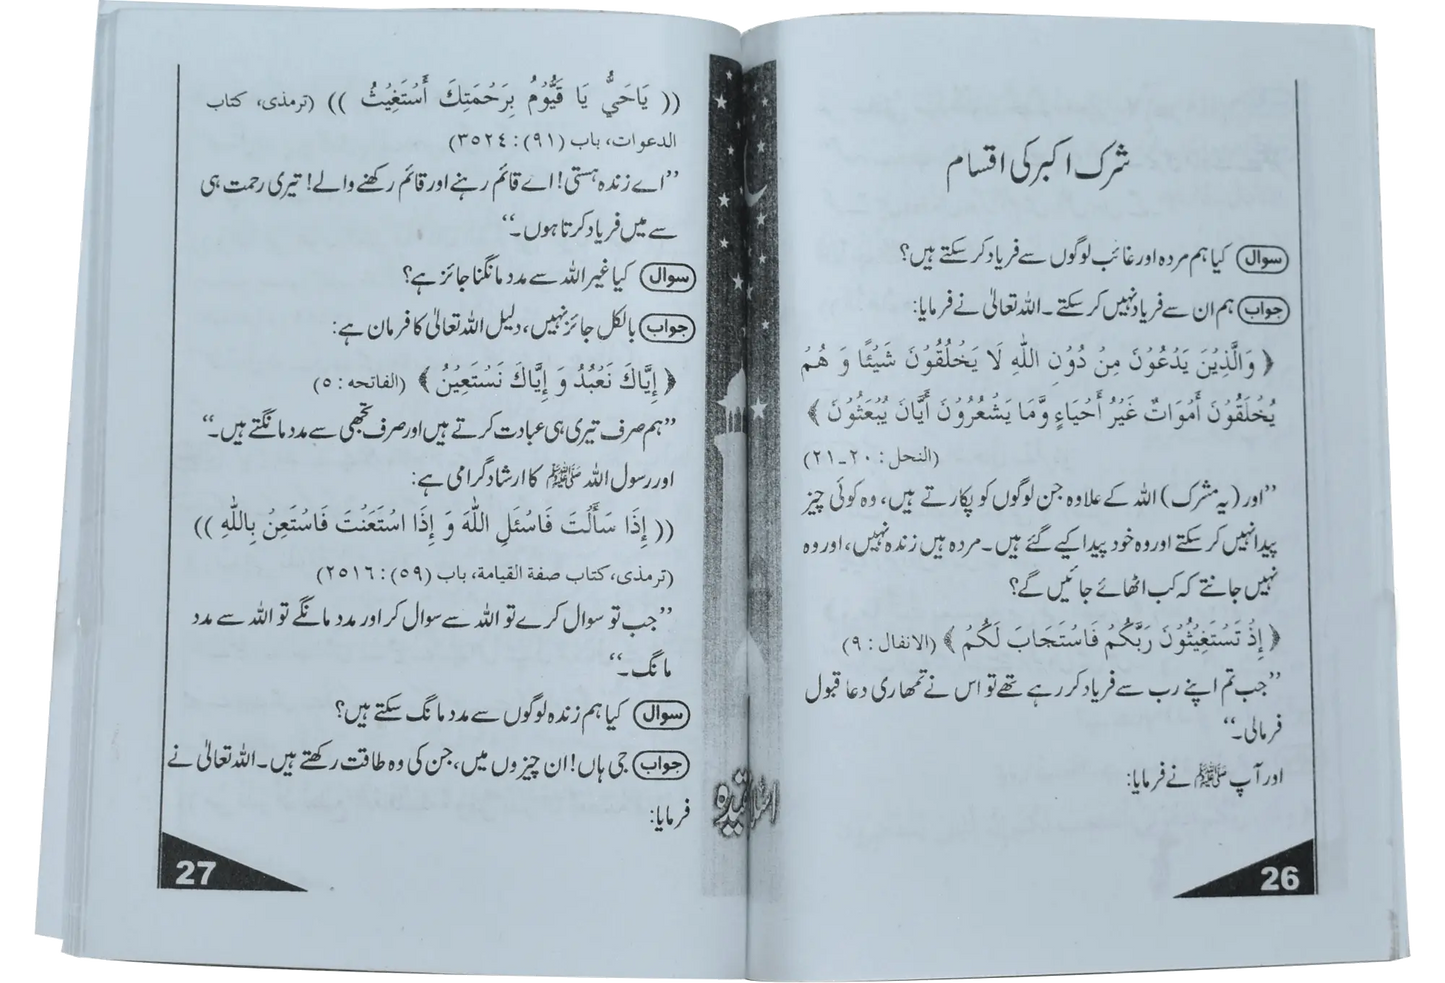 شرک اکبر کی اقسام
سوال کیا ہم مردہ اور غائب لوگوں سے فریاد کر سکتے ہیں؟
جواب ہم ان سے فریاد نہیں کر سکتے۔ اللہ تعالیٰ نے فرمایا:
﴿ وَالَّذِيْنَ يَدْعُوْنَ مِنْ دُوْنِ اللّٰهِ لَا يَخْلُقُوْنَ شَيْئًا وَ هُمْ
يُخْلَقُوْنَ أَمْوَاتٌ غَيْرُ أَحْيَاءٍ وَّمَا يَشْعُرُوْنَ أَيَّانَ يُبْعَثُوْنَ ﴾
(النحل : ٢٠-٢١)
’’اور (یہ مشرک) اللہ کے علاوہ جن لوگوں کو پکارتے ہیں، وہ کوئی چیز
پیدا نہیں کر سکتے اور وہ خود پیدا کیے گئے ہیں۔ مردہ ہیں زندہ نہیں، اور وہ
نہیں جانتے کہ کب اٹھائے جائیں گے؟
﴿ إِذْ تَسْتَغِيْثُوْنَ رَبَّكُمْ فَاسْتَجَابَ لَكُمْ ﴾ (الانفال : ٩)
’’جب تم اپنے رب سے فریاد کر رہے تھے تو اس نے تمھاری دعا قبول
فرمالی۔‘‘
اور آپ ﷺ نے فرمایا:
26
(( يَاحَيُّ يَا قَيُّوْمُ بِرَحْمَتِكَ أَسْتَغِيْثُ )) (ترمذی، کتاب
الدعوات، باب (٩١) : ٣٥٢٤)
’’اے زندہ ہستی! اے قائم رہنے اور قائم رکھنے والے! تیری رحمت ہی
سے میں فریاد کرتا ہوں۔‘‘
سوال کیا غیر اللہ سے مدد مانگنا جائز ہے؟
جواب بالکل جائز نہیں، دلیل اللہ تعالیٰ کا فرمان ہے:
﴿ إِيَّاكَ نَعْبُدُ وَ إِيَّاكَ نَسْتَعِيْنُ ﴾ (الفاتحه : ٥)
’’ہم صرف تیری ہی عبادت کرتے ہیں اور صرف تجھی سے مدد مانگتے ہیں۔‘‘
اور رسول اللہ ﷺ کا ارشاد گرامی ہے:
(( إِذَا سَأَلْتَ فَاسْئَلِ اللّٰهَ وَ إِذَا اسْتَعَنْتَ فَاسْتَعِنْ بِاللّٰهِ ))
(ترمذی، کتاب صفة القیامة، باب (٥٩) : ٢٥١٦)
’’جب تو سوال کرے تو اللہ سے سوال کر اور مدد مانگے تو اللہ سے مدد
مانگ۔‘‘
سوال کیا ہم زندہ لوگوں سے مدد مانگ سکتے ہیں؟
جواب جی ہاں! ان چیزوں میں، جن کی وہ طاقت رکھتے ہیں۔ اللہ تعالیٰ نے
فرمایا:
27